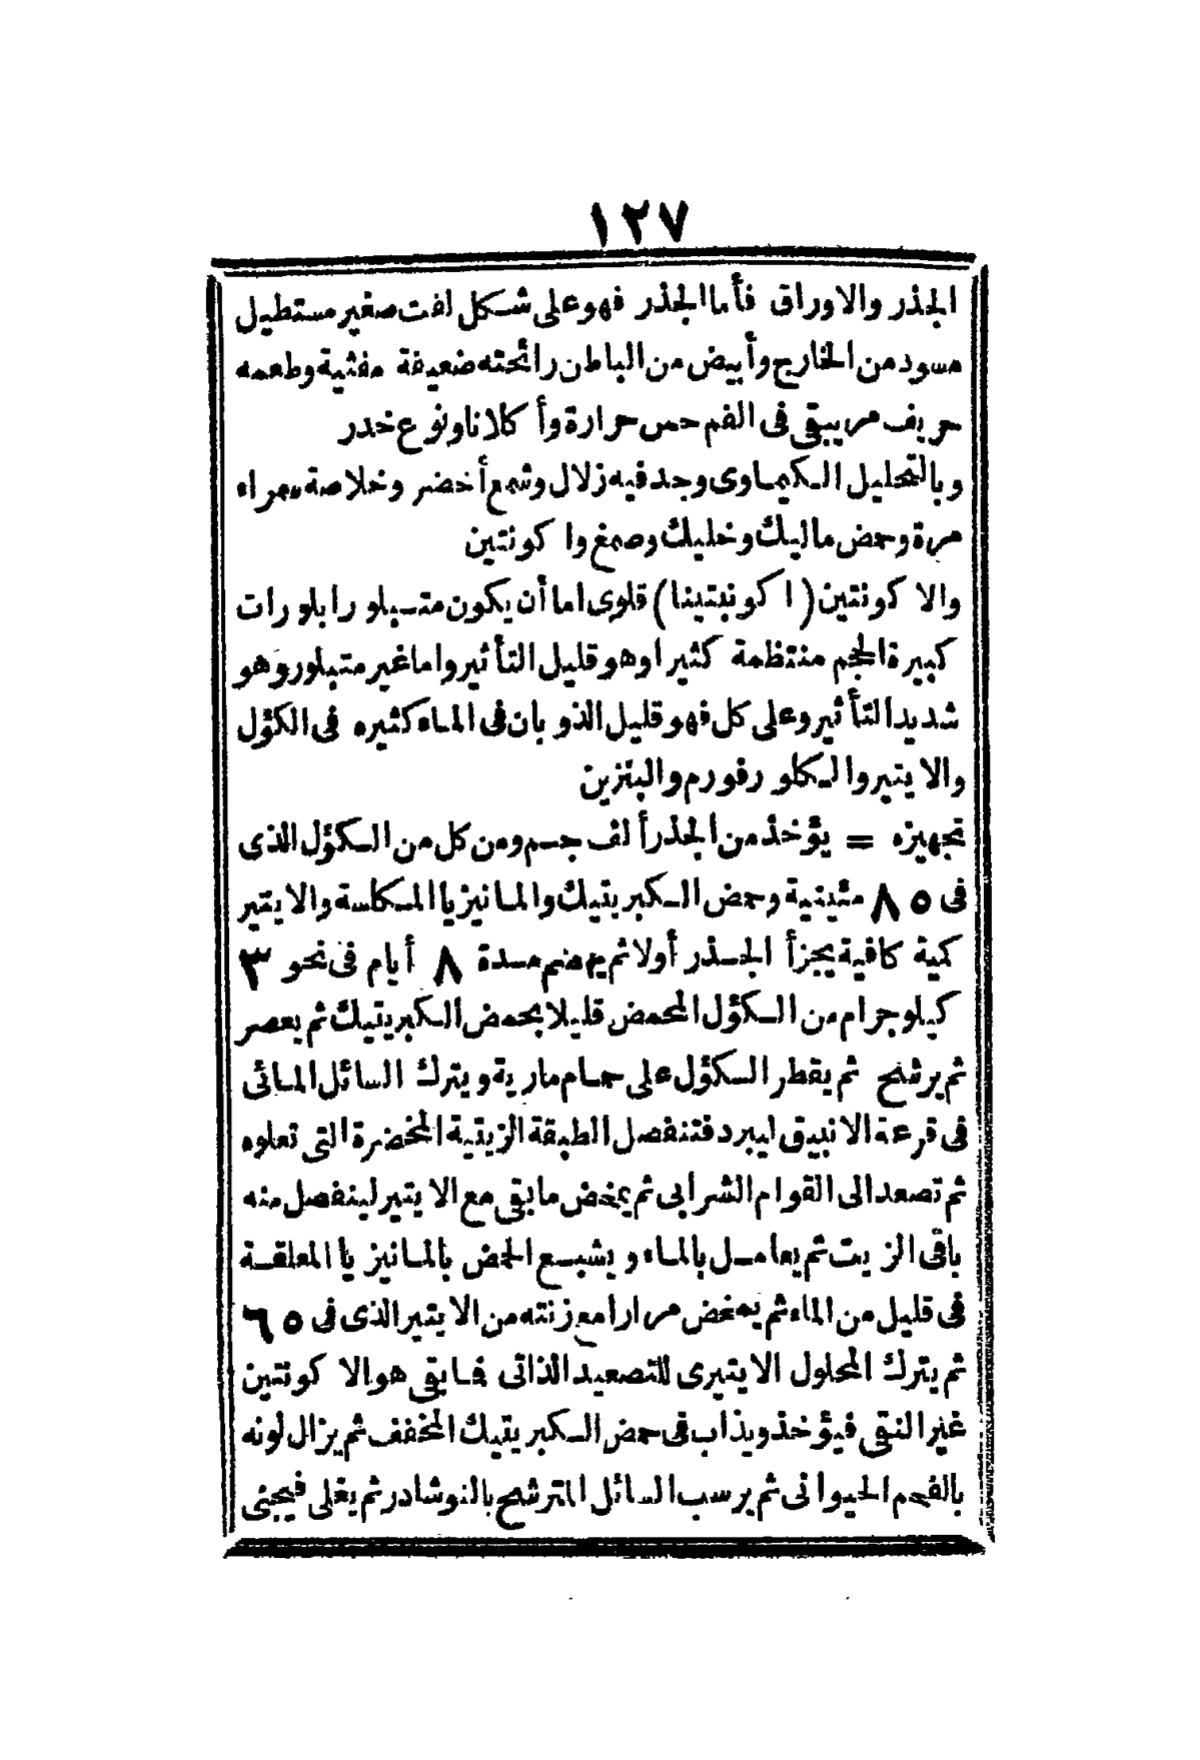 ١٢٧
الجذر والاوراق فأما الجذر فهو على شكل لفت صغير مستطيل
مسود من الخارج وأبيض من الباطن رائحته ضعيفة مغثية وطعمه
حريف مر يبقى فى الفم حس حرارة وأكلانا ونوع خدر
وبالتحليل الكيماوى وجد فيه زلال وشمع أخضر وخلاصة سمراء
مرة وحمض ماليك وخليك وصمغ واكونتين
والاكونتين (اكونيتينا) قلوى اما أن يكون متبلورا بلورات
كبيرة الحجم منتظمة كثيرا وهو قليل التأثير واما غير متبلور وهو
شديد التأثير وعلى كل فهو قليل الذوبان فى الماء كثيره فى الكؤل
والايتير والكلوروفورم والبنزين
تجهيزه = يؤخذ من الجذر ألف جسم ومن كل من الكؤل الذى
فى ٨٥ مئينية وحمض الكبريتيك والمانيزيا المكلسة والايتير
كمية كافية يجزأ الجذر أولا ثم يهضم مدة ٨ أيام فى نحو ٣
كيلوجرام من الكؤل المحمض قليلا بحمض الكبريتيك ثم يعصر
ثم يرشح ثم يقطر الكؤل على حمام مارية ويترك السائل المائى
فى قرعة الانبيق ليبرد فتنفصل الطبقة الزيتية المخضرة التى تعلوه
ثم تصعد الى القوام الشرابى ثم يمخض ما بقى مع الايتير لينفصل منه
باقى الزيت ثم يعامل بالماء ويشبع الحمض بالمانيزيا المعلقة
فى قليل من الماء ثم يمخض مرارا مع زنته من الايتير الذى فى ٦٥
ثم يترك المحلول الايتيرى للتصعيد الذاتى فما بقى هو الاكونتين
غير النقى فيؤخذ ويذاب فى حمض الكبريتيك المخفف ثم يزال لونه
بالفحم الحيوانى ثم يرسب السائل المترشح بالنوشادر ثم يغلى فيجنى